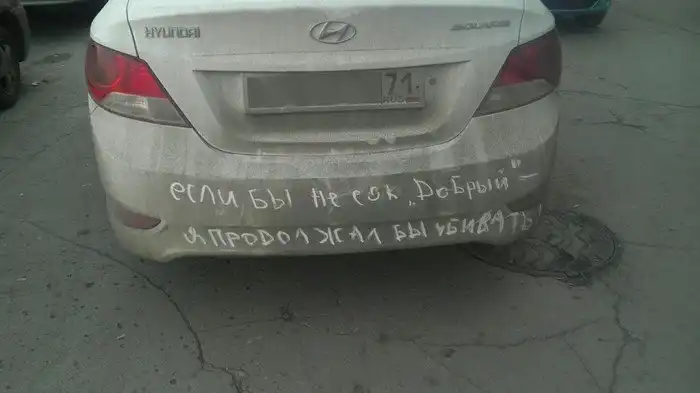 HYUNDAI SOLARIS
71
RUS
если бы не сок „Добрый“ –
я продолжал бы убивать!